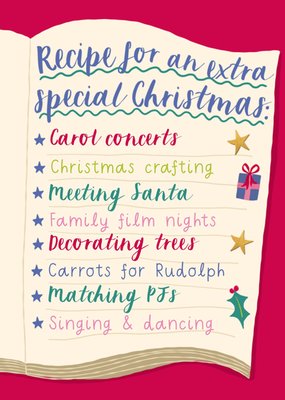 Recipe for an extra
special Christmas:
Carol concerts
Christmas crafting
Meeting Santa
Family film nights
Decorating trees
Carrots for Rudolph
Matching PJs
Singing & dancing